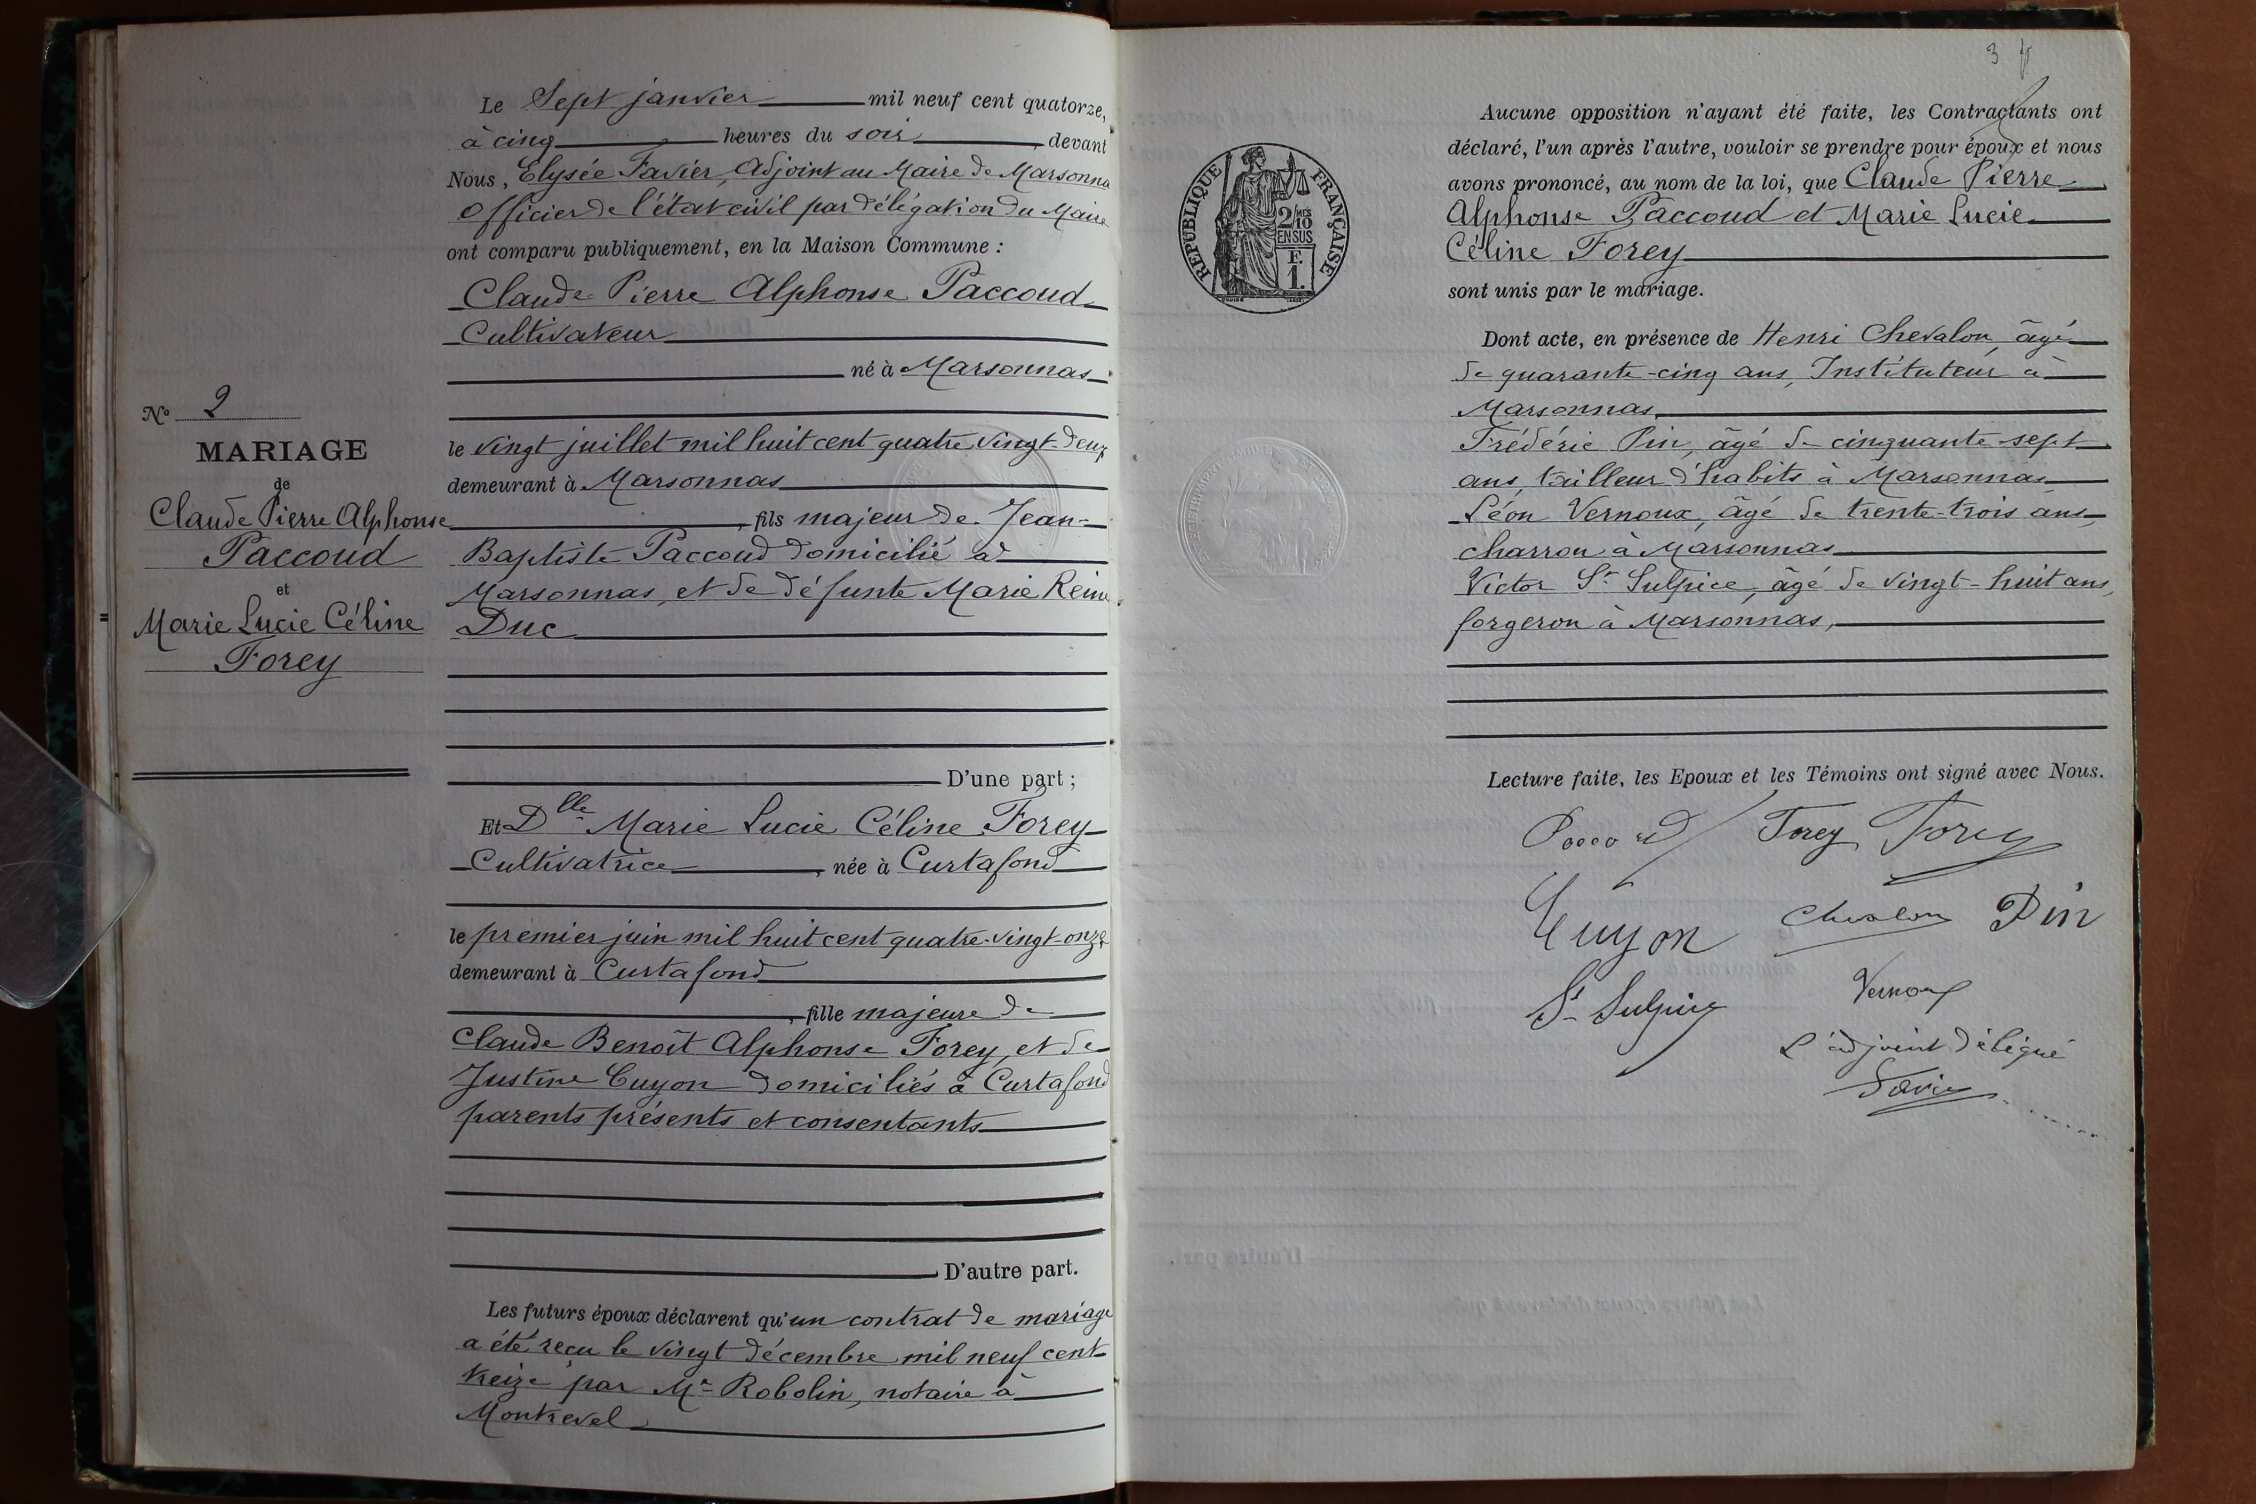 Le Sept janvier mil neuf cent quatorze,
à cinq heures du soir, devant
Nous, Elysée Favier, Adjoint au Maire de Marsonna
Officier de l'état civil par délégation du Maire
ont comparu publiquement, en la Maison Commune :
Claude Pierre Alphonse Paccoud
Cultivateur
né à Marsonnas
le vingt juillet mil huit cent quatre vingt-deux
demeurant à Marsonnas
, fils majeur de Jean-
Baptiste Paccoud domicilié à
Marsonnas, et de défunte Marie Reine
Duc
D'une part ;
Et Dlle Marie Lucie Céline Forey
Cultivatrice, née à Curtafond
le premier juin mil huit cent quatre-vingt-onze
demeurant à Curtafond
, fille majeure de
Claude Benoît Alphonse Forey, et de
Justine Guyon domiciliés à Curtafond
parents présents et consentants
D'autre part.
Les futurs époux déclarent qu'un contrat de mariage
a été reçu le vingt décembre mil neuf cent
treize par Me Robolin, notaire à
Montrevel
No 2
MARIAGE
de
Claude Pierre Alphonse
Paccoud
et
Marie Lucie Céline
Forey
3
RÉPUBLIQUE FRANÇAISE
2/10 MES
EN SUS
F.
1.
Aucune opposition n'ayant été faite, les Contractants ont
déclaré, l'un après l'autre, vouloir se prendre pour époux et nous
avons prononcé, au nom de la loi, que Claude Pierre
Alphonse Paccoud et Marie Lucie
Céline Forey
sont unis par le mariage.
Dont acte, en présence de Henri Chevalon, âgé
de quarante-cinq ans, Instituteur à
Marsonnas,
Frédéric Pin, âgé de cinquante-sept
ans, tailleur d'habits à Marsonnas
Léon Vernoux, âgé de trente-trois ans,
charron à Marsonnas
Victor St Sulpice, âgé de vingt-huit ans,
forgeron à Marsonnas,
Lecture faite, les Epoux et les Témoins ont signé avec Nous.
Forey Forey
Guyon Chevalon Pin
St Sulpice Vernoux
L'adjoint délégué
Favier